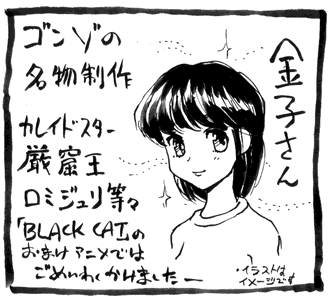 金子さん
ゴンゾの
名物制作
カレイドスター
巌窟王
ロミジュリ等々
「BLACK CAT」の
おまけアニメでは
ごめいわくかけましたー
・イラストは
イメージです